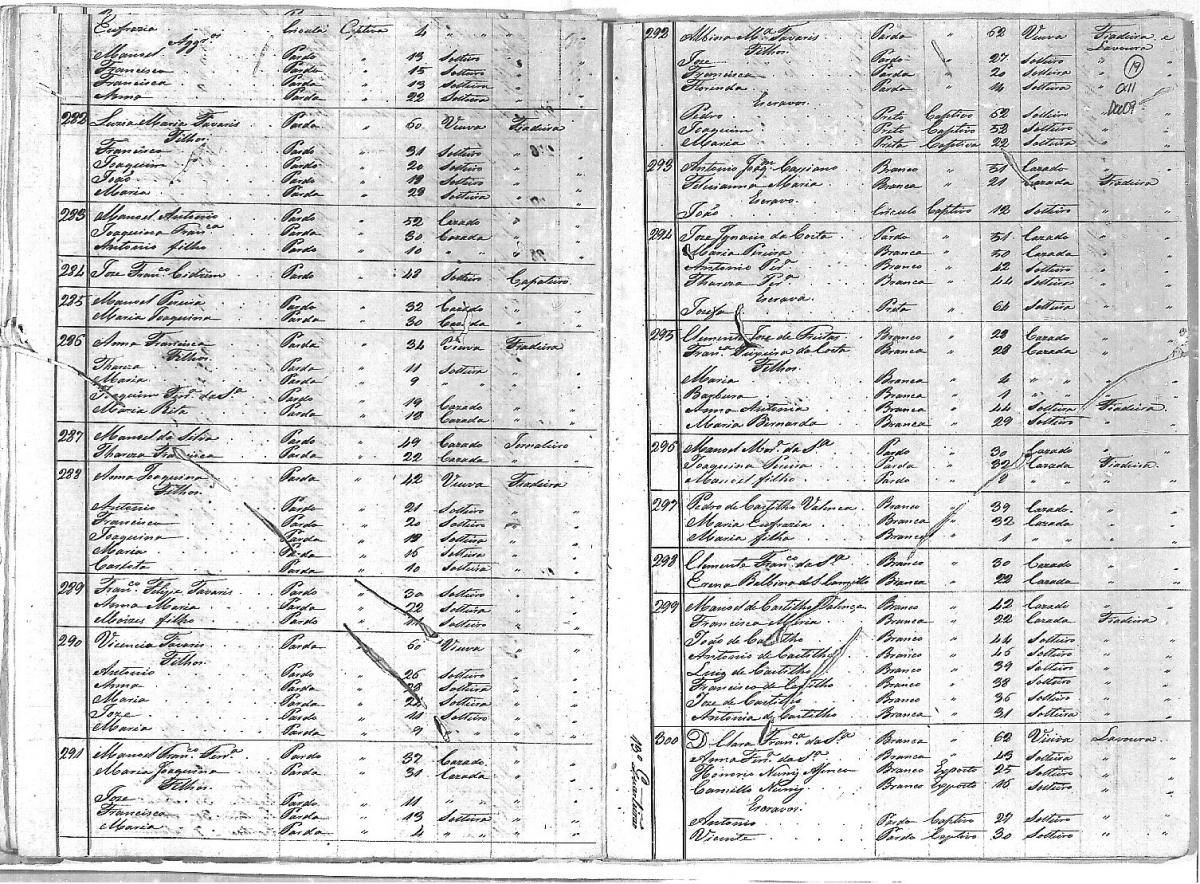 Eufrazia Crioula Captiva 4 " " "
Aggr.os
Manoel Pardo " 13 Solteiro "
Francisco Pardo " 15 Solteiro "
Francisca Parda " 13 Solteira "
Anna Parda " 22 Solteira "
282 Luzia Maria Tavaris Parda " 60 Viuva Fiadeira
Filhos
Francisco Pardo " 31 Solteiro "
Joaquim Pardo " 20 Solteiro "
João Pardo " 18 Solteiro "
Maria Parda " 28 Solteira "
283 Manoel Antonio Pardo " 52 Cazado "
Joaquina Fran.ca Parda " 30 Cazada "
Antonio filho Pardo " 10 " " "
284 Joze Fran.co Pardo " 48 Solteiro Capateiro
285 Manoel Pereira Pardo " 32 Cazado "
Maria Joaquina Parda " 30 Cazada "
286 Anna Francisca Parda " 34 Viuva Fiadeira
Filhos
Thereza Parda " 11 Solteira "
Maria Parda " 9 " " "
Joaquim Fer.a da S.a Pardo " 19 Cazado "
Maria Rita Parda " 18 Cazada "
287 Manoel da Silva Pardo " 49 Cazado Jornaleiro
Thereza Francisca Parda " 22 Cazada "
288 Anna Joaquina Parda " 42 Viuva Fiadeira
Filhos
Antonio Pardo " 21 Solteiro "
Francisco Pardo " 20 Solteiro "
Joaquina Parda " 18 Solteira "
Maria Parda " 16 Solteira "
Carlota Parda " 10 Solteira "
289 Fran.co Felipe Tavaris Pardo " 30 Solteiro "
Anna Maria Parda " 22 Solteira "
Moizes filho Pardo " Solteiro "
290 Vicencia Tavaris Parda " 60 Viuva "
Filhos
Antonio Pardo " 26 Solteiro "
Anna Parda " 28 Solteira "
Maria Parda " Solteira "
Joze Pardo " 11 Solteiro "
Maria Parda " 9 " " "
291 Manoel Fran.co Fer.a Pardo " 32 Cazado "
Maria Joaquina Parda " 31 Cazada "
Filhos
Joze Pardo " 11 " " "
Francisco Pardo " 13 Solteiro "
Maria Parda " 4 " " "
292 Albina M.a Tavaris Parda " 52 Viuva Fiadeira e
Filhos Lavoura
Joze Pardo " 27 Solteiro "
Francisca Parda " 20 Solteira "
Florinda Parda " 14 Solteira "
Escravos
Pedro Preto Captivo 52 Solteiro "
Joaquim Preto Captivo 52 Solteiro "
Maria Preta Captiva 22 Solteira "
19
CX11
D009
293 Antonio Joaq.m Cassiano Branco " 31 Cazado
Felicianna Maria Branca " 21 Cazada Fiadeira
Escravo
João Crioulo Captivo 12 Solteiro "
294 Joze Ignacio da Costa Pardo " 51 Cazado "
Maria Pereira Branca " 50 Cazada "
Antonio Per.a Branco " 42 Solteiro "
Thereza Per.a Branca " 44 Solteira "
Escrava
Jozefa Preta " 64 Solteira "
295 Clemente Joze de Freitas Branco " 28 Cazado "
Fran.ca Teixeira da Costa Branca " 28 Cazada "
Filhos
Maria Branca " 2 " " "
Barbara Branca " 1 " " "
Anna Antonia Branca " 44 Solteira Fiadeira
Maria Bernarda Branca " 29 Solteira "
296 Manoel da S.a Pardo " 30 Cazado "
Joaquina Pereira Parda " 32 Cazada Fiadeira
Manoel filho Pardo " 2 " " "
297 Pedro de Castilho Valença Branco " 39 Cazado "
Maria Eufrazia Branca " 32 Cazada "
Maria filha Branca " 1 " " "
298 Clemente Fran.co da S.a Branco " 30 Cazado "
Erena Balbina de S. Branca " 22 Cazada "
299 Manoel de Castilho Valença Branco " 42 Cazado "
Francisca Maria Branca " 22 Cazada Fiadeira
João de Castilho Branco " 44 Solteiro "
Antonio de Castilho Branco " 45 Solteiro "
Luiz de Castilho Branco " 39 Solteiro "
Francisco de Castilho Branco " 38 Solteiro "
Joze de Castilho Branco " 36 Solteiro "
Antonia de Castilho Branca " 31 Solteira "
300 D Clara Fran.ca da S.a Branca " 62 Viuva Lavoura
Anna Fer.a da S.a Branca " 43 Solteira "
Nuniz Branco Exposto 25 Solteiro "
Camillo Nuniz Branco Exposto 16 Solteiro "
Escravos
Antonio Pardo Captivo 27 Solteiro "
Vicente Pardo Captivo 30 Solteiro "
13º Quarteirão